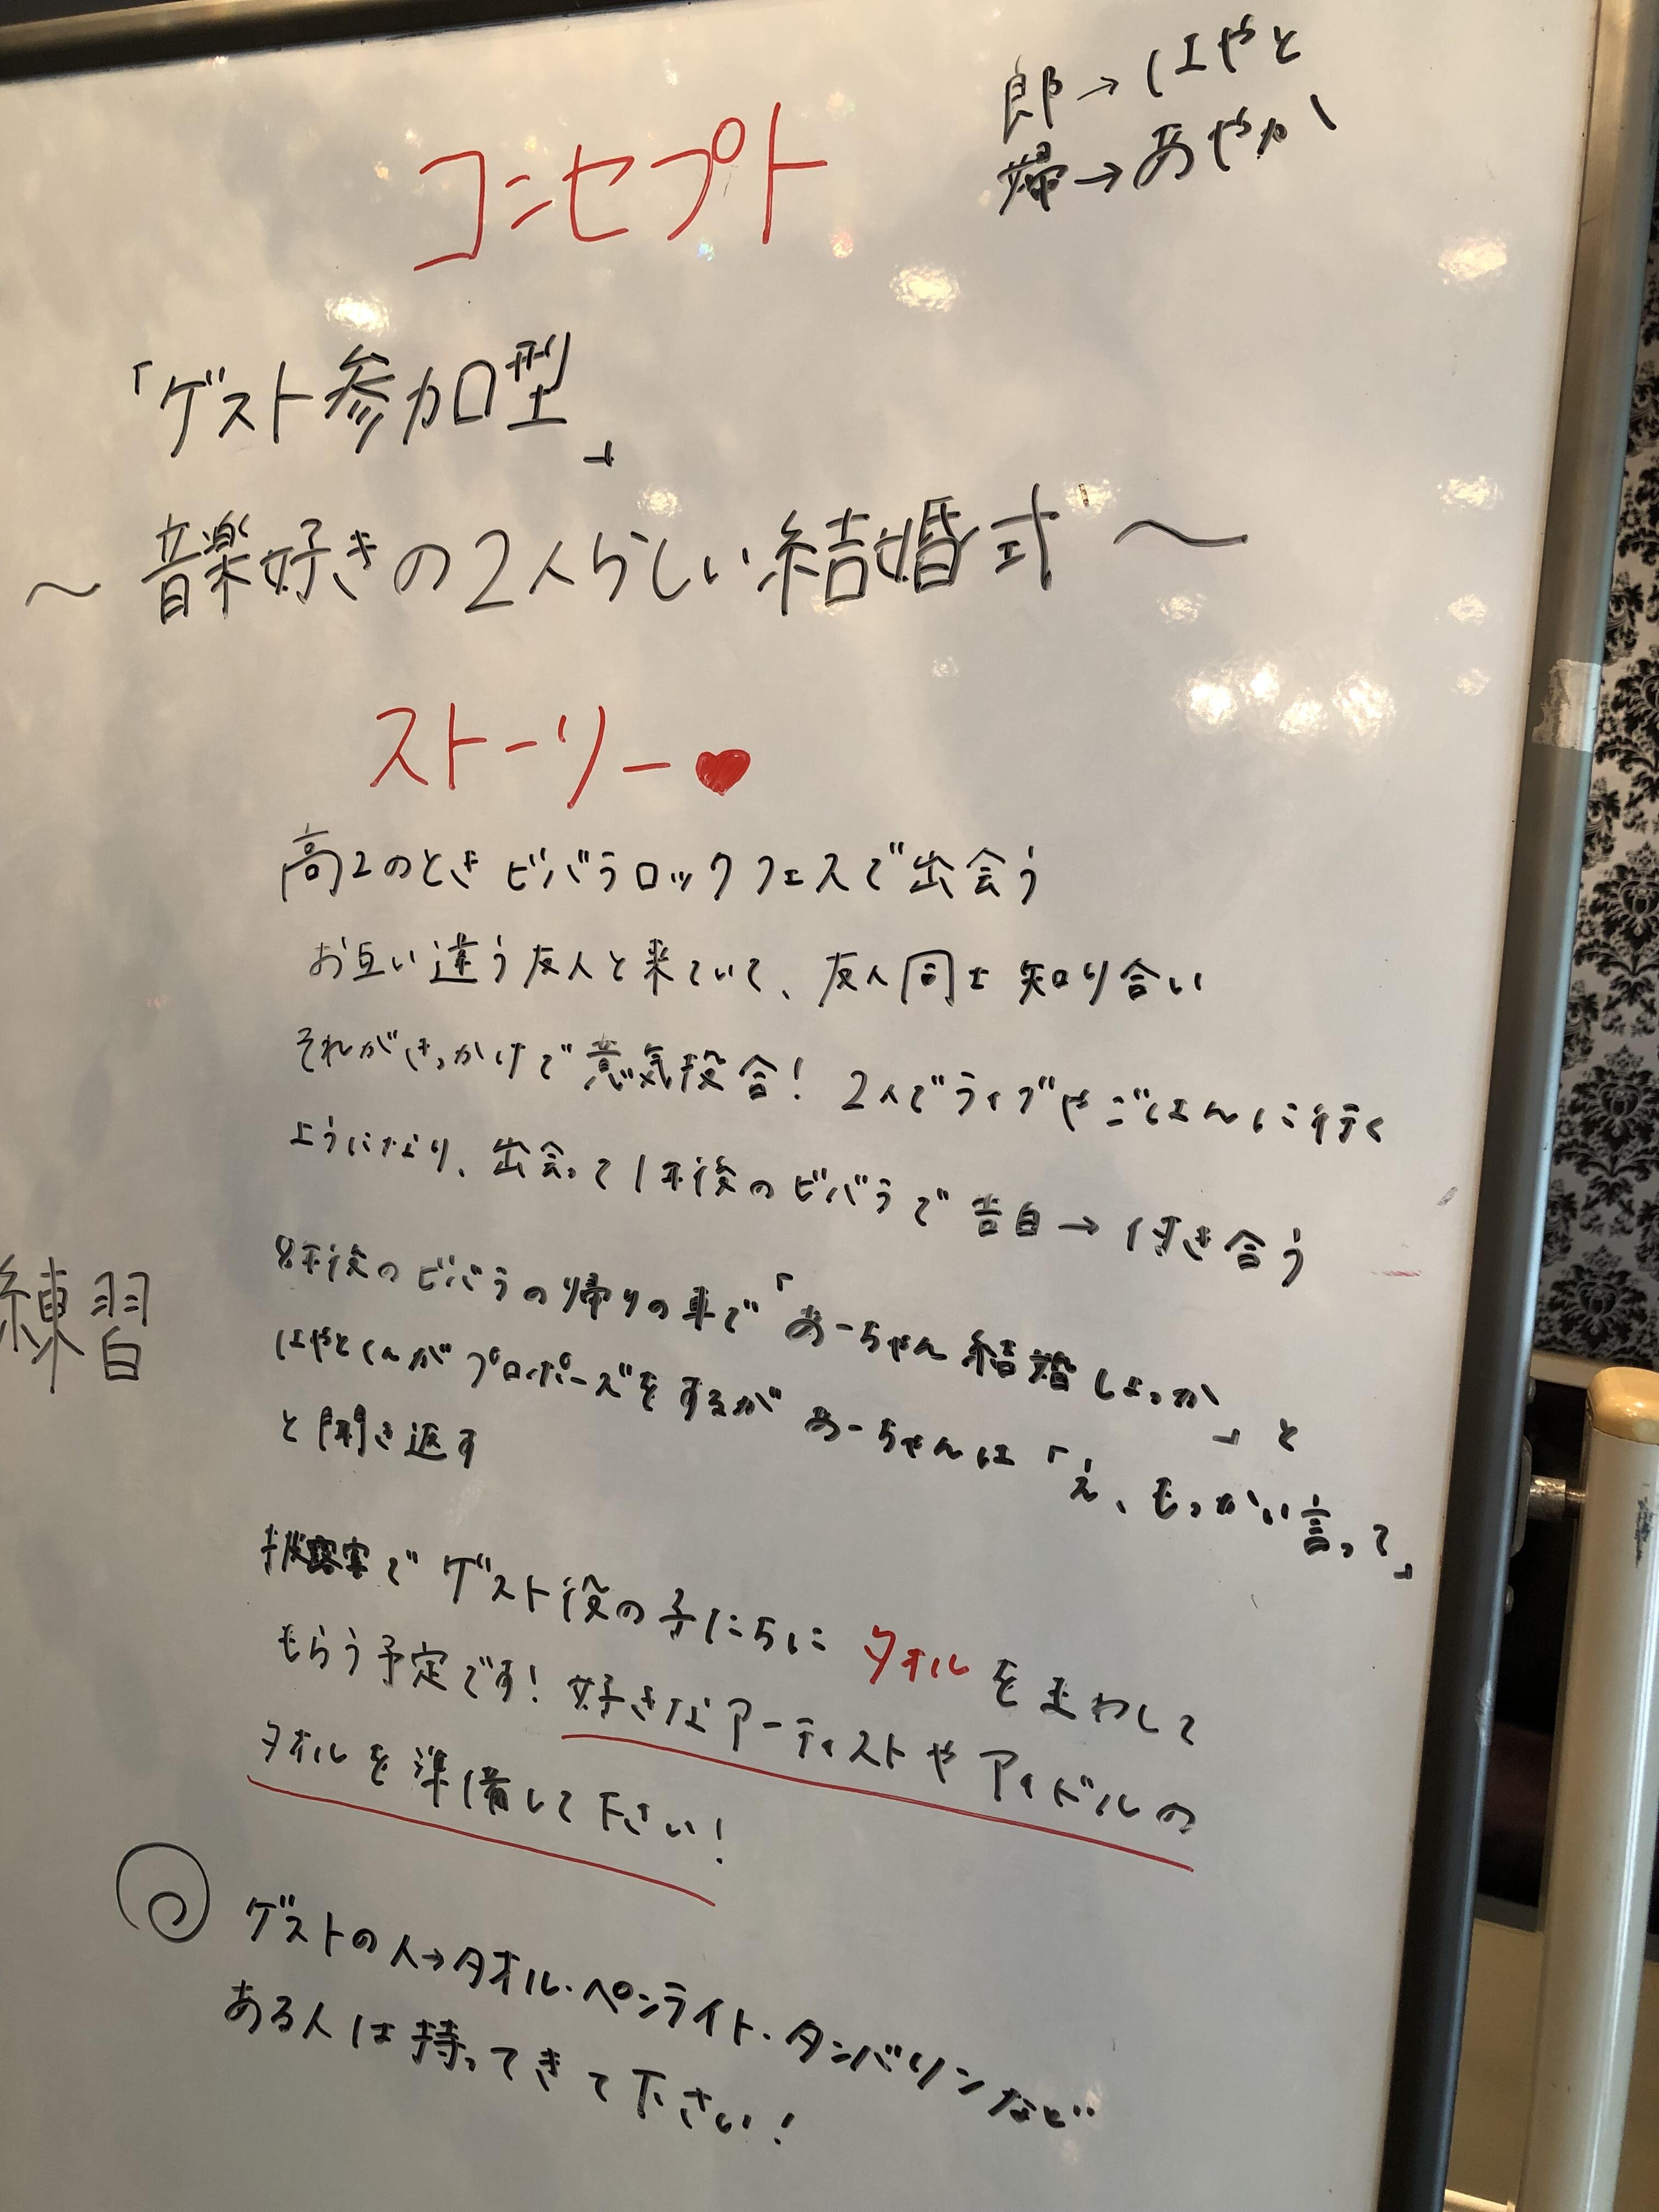 郎→はやと
婦→あやか
コンセプト
「ゲスト参加型」
〜音楽好きの2人らしい結婚式〜
ストーリー♥
高2のとき ビバラロックフェスで出会う
お互い違う友人と来ていて、友人同士知り合い
それがきっかけで意気投合! 2人でライブやごはんに行く
ようになり、出会って1年後のビバラで告白→付き合う
8年後のビバラの帰りの車で「あーちゃん結婚しよっか」と
はやとくんがプロポーズをするがあーちゃんは「え、もっかい言って」
と聞き返す
練習
披露宴でゲスト役の子たちにタオルをまわして
もらう予定です! 好きなアーティストやアイドルの
タオルを準備して下さい!
ゲストの人→タオル・ペンライト・タンバリンなど
ある人は持ってきて下さい!